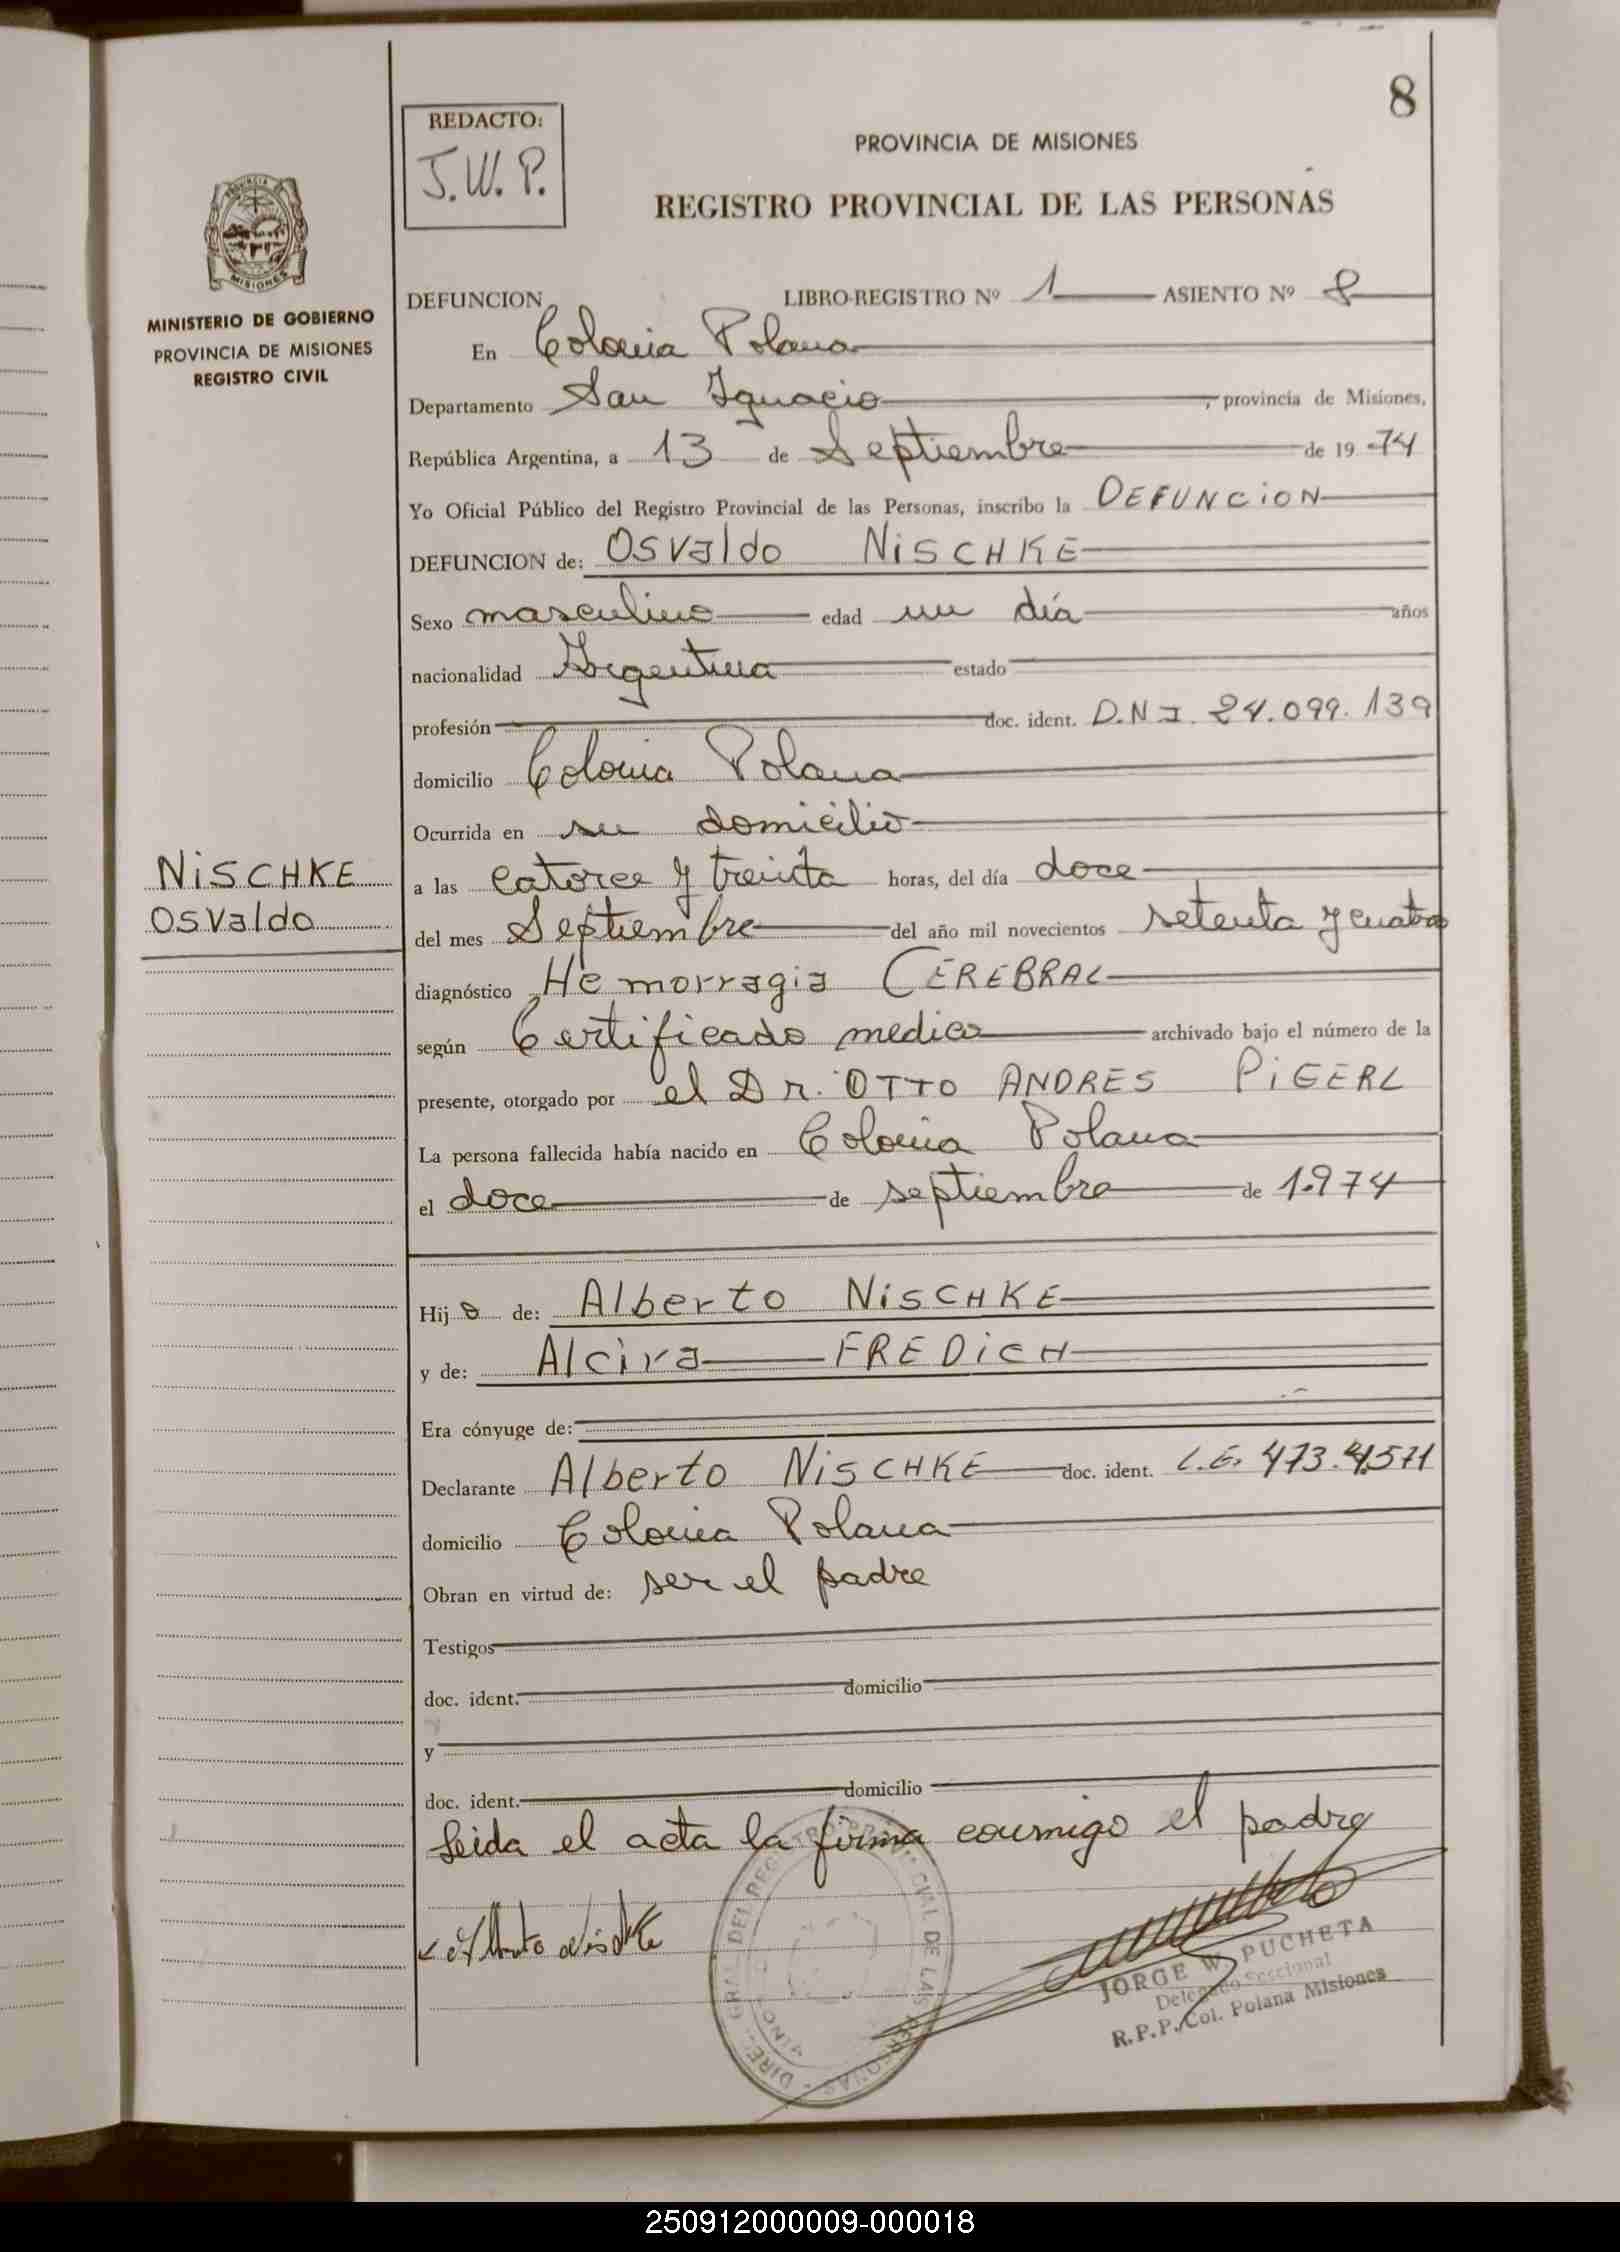 8
REDACTO:
J.W.P.
PROVINCIA DE MISIONES
REGISTRO PROVINCIAL DE LAS PERSONAS
PROVINCIA DE
MISIONES
MINISTERIO DE GOBIERNO
PROVINCIA DE MISIONES
REGISTRO CIVIL
DEFUNCION LIBRO-REGISTRO Nº 1 ASIENTO Nº 8
En Colonia Polana
Departamento San Ignacio, provincia de Misiones,
República Argentina, a 13 de Septiembre de 19 74
Yo Oficial Público del Registro Provincial de las Personas, inscribo la DEFUNCION
DEFUNCION de: Osvaldo NISCHKE
Sexo masculino edad un día años
nacionalidad Argentina estado
profesión doc. ident. D.N.I. 24.099.139
domicilio Colonia Polana
Ocurrida en su domicilio
NISCHKE
Osvaldo
a las catorce y treinta horas, del día doce
del mes Septiembre del año mil novecientos setenta y cuatro
diagnóstico Hemorragia CEREBRAL
según Certificado medico archivado bajo el número de la
presente, otorgado por el Dr. OTTO ANDRES PIGERL
La persona fallecida había nacido en Colonia Polana
el doce de septiembre de 1.974
Hij o de: Alberto NISCHKE
y de: Alcira FREDICH
Era cónyuge de:
Declarante Alberto NISCHKE doc. ident. L.E. 473.4571
domicilio Colonia Polana
Obran en virtud de: ser el padre
Testigos
doc. ident. domicilio
y
doc. ident. domicilio
Leida el acta la firma conmigo el padre
Alberto Nischke
JORGE W. PUCHETA
Delegado Seccional
R.P.P. Col. Polana Misiones
250912000009-000018